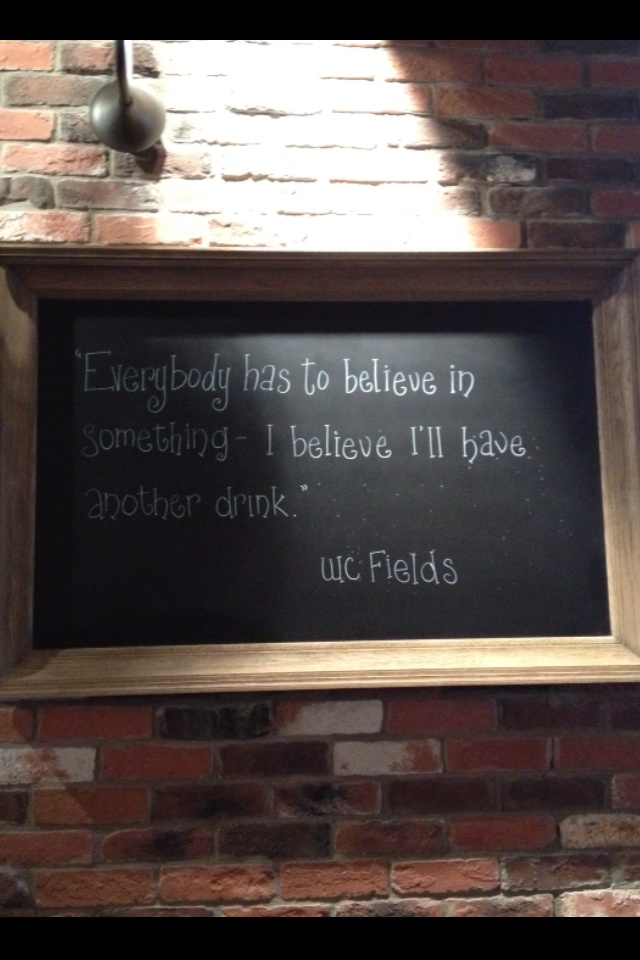 "Everybody has to believe in
something - I believe I'll have
another drink."
WC Fields